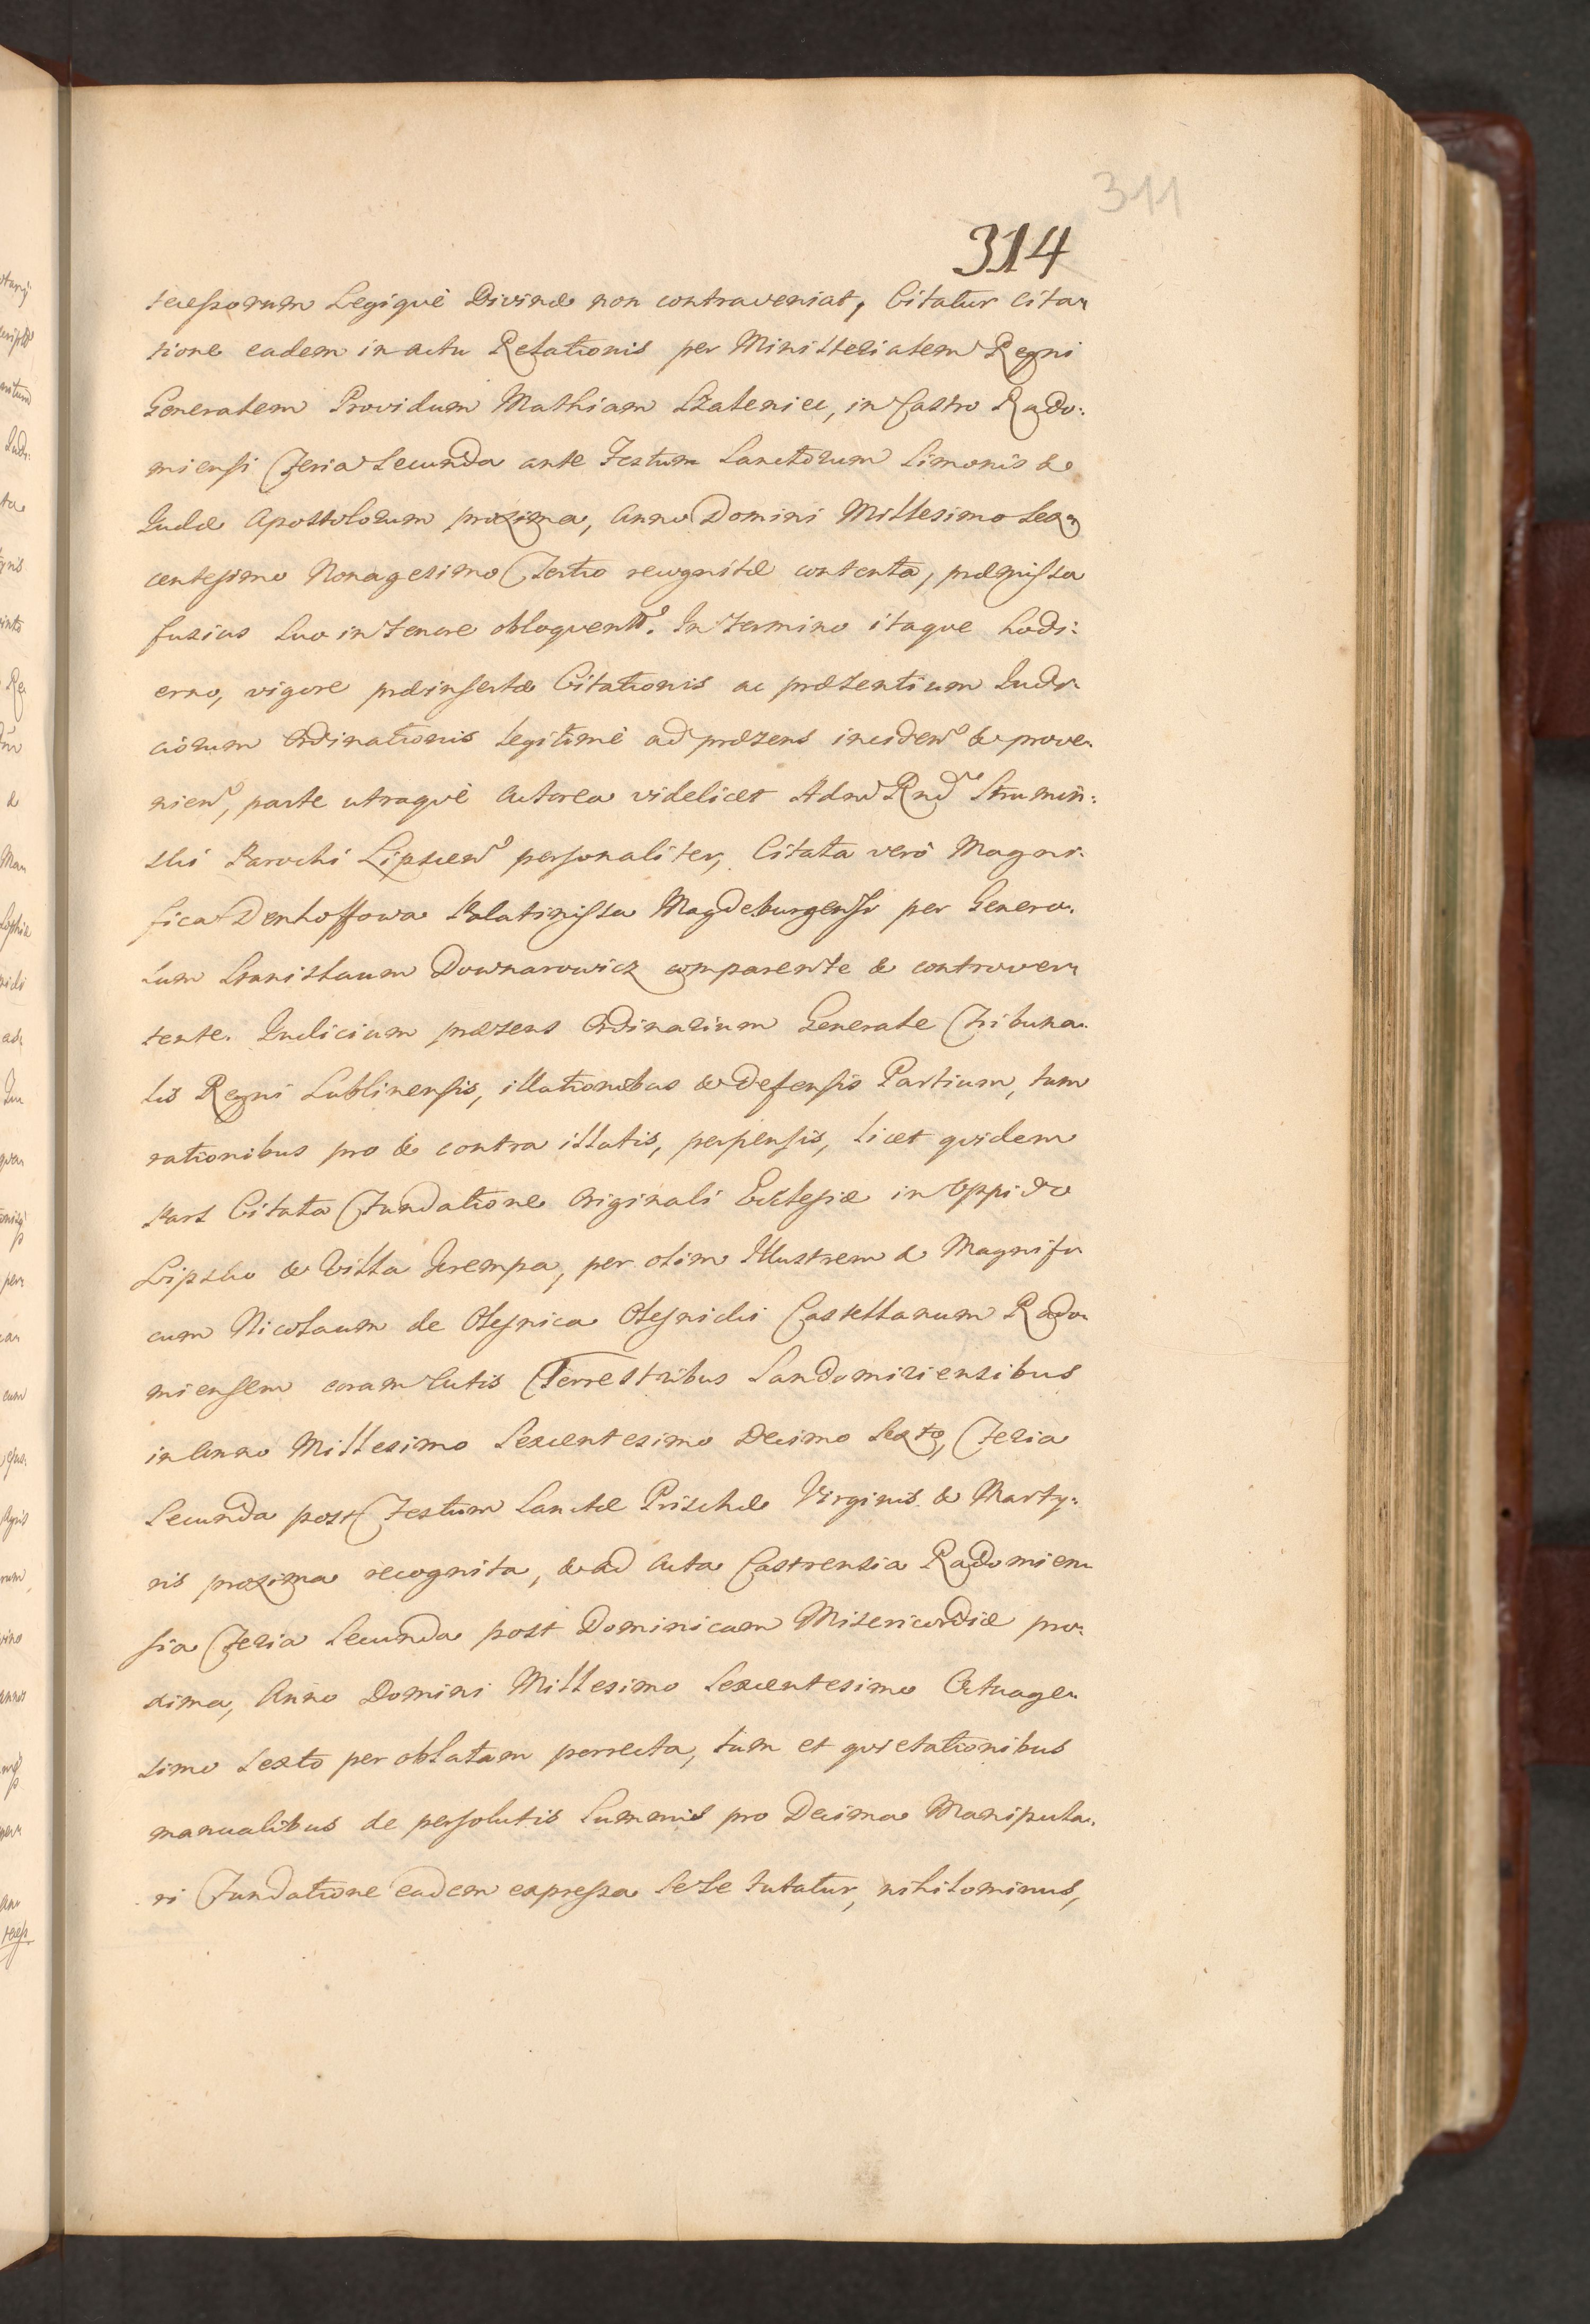 311
314
tecessorum Legiqve Divinæ non contraveniat, Citatur cita-
tione eadem in actu Relationis per Ministerialem Regni
Generalem Providum Mathiam Szaleniec, in Castro Rado:
miensi Feria Secunda ante Festum Sanctorum Simonis &
Judæ Apostolorum proxima, Anno Domini Millesimo Sex-
centesimo Nonagesimo Tertio recognitæ contenta, præmissa
fusius suo in tenore obloquen. In termino itaque hodi:
erno, vigore præinsertæ Citationis ac præsentium Judi-
ciorum Ordinationis legitimè ad præsens inciden & prove-
nien, parte utraqve Actorea videlicet Adm Rnd Strumin:
ski Parochi Lipscen personaliter, Citata verò Magni-
fica Denhoffowa Palatinissa Magdeburgensi per Genero-
sum Stanislaum Downarowicz comparente & controver-
tente. Judicium præsens Ordinarium Generale Tribuna-
lis Regni Lublinensis, illationibus & defensis Partium, tum
rationibus pro & contra illatis, perpensis, licet qvidem
Pars Citata Fundatione Originali Ecclesiæ in Oppido
Lipsko & Villa Krempa, per olim Illustrem & Magnifi-
cum Nicolaum de Olesnica Olesnicki Castellanum Rado-
miensem coram Actis Terrestribus Sandomiriensibus
in Anno Millesimo Sexcentesimo Decimo Sexto, Feria
Secunda post Festum Sanctæ Prischæ Virginis & Marty:
ris proxima recognita, & ad Acta Castrensia Radomien-
sia Feria Secunda post Dominicam Misericordiæ pro-
xima, Anno Domini Millesimo Sexcentesimo Octuage-
simo Sexto per oblatam porrecta, tum et qvietationibus
manualibus de persolutis Summis pro Decima Manipula-
ri Fundatione eadem expressa sese tutatur, nihilominus,